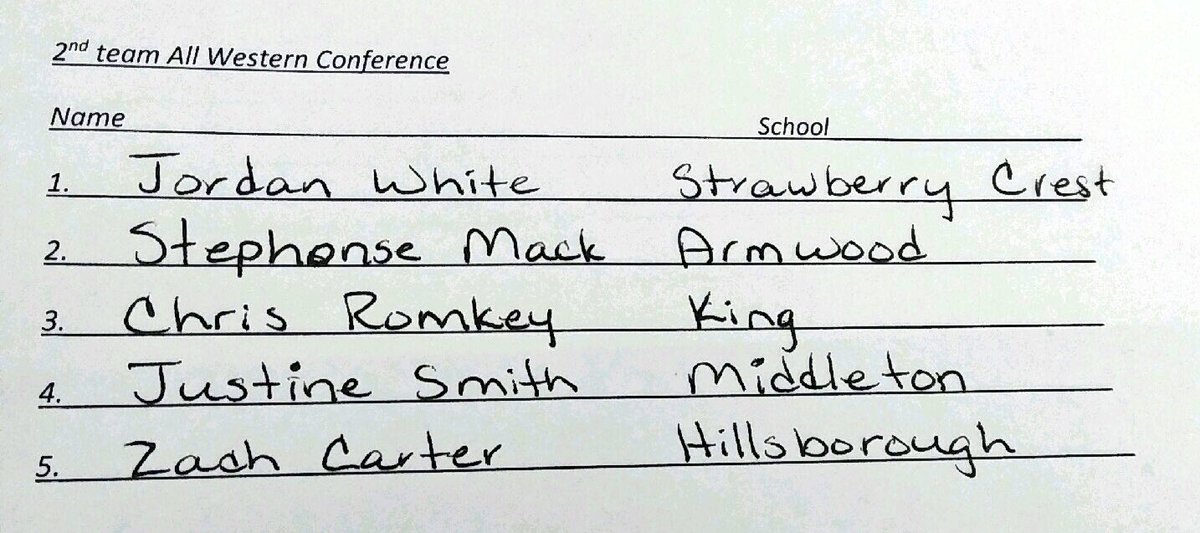 2nd team All Western Conference
Name School
1. Jordan White Strawberry Crest
2. Stephonse Mack Armwood
3. Chris Romkey King
4. Justine Smith Middleton
5. Zach Carter Hillsborough